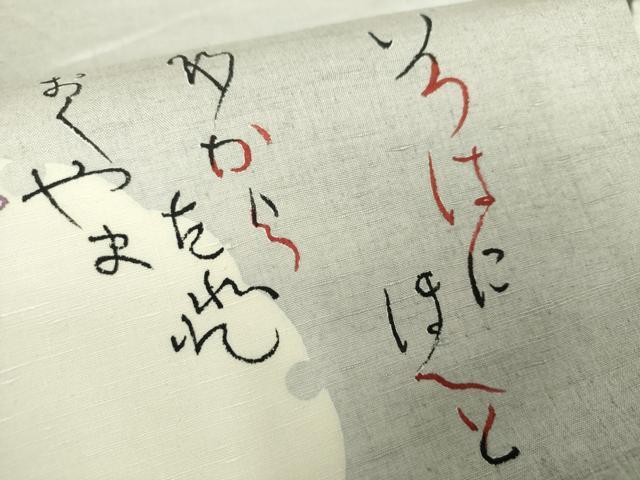 いろはにほへと
わかよたれ
おくやま